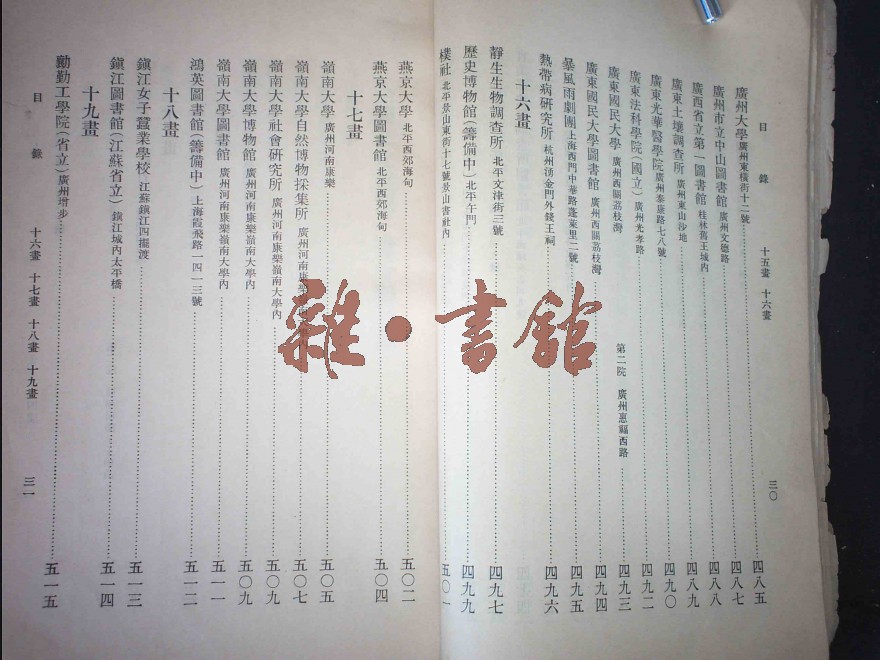 目錄 十五畫 十六畫 三〇
廣州大學 廣州東橫街十二號 四八五
廣州市立中山圖書館 廣州文德路 四八七
廣西省立第一圖書館 桂林舊王城內 四八八
廣東土壤調查所 廣州東山沙地 四八九
廣東光華醫學院 廣州泰康路七八號 四九〇
廣東法科學院(國立) 廣州光孝路 四九二
廣東國民大學 廣州西關荔枝灣 第二院 廣州惠福西路 四九三
廣東國民大學圖書館 廣州西關荔枝灣 四九四
暴風雨劇團 上海西門中華路蓬萊里二號 四九五
熱帶病研究所 杭州湧金門外錢王祠 四九六
十六畫
靜生生物調查所 北平文津街三號 四九七
歷史博物館(籌備中) 北平午門 四九九
樸社 北平景山東街十七號景山書社內 五〇一
燕京大學 北平西郊海甸 五〇二
燕京大學圖書館 北平西郊海甸 五〇四
十七畫
嶺南大學 廣州河南康樂 五〇五
嶺南大學自然博物採集所 廣州河南康樂嶺南大學內 五〇七
嶺南大學社會研究所 廣州河南康樂嶺南大學內 五〇九
嶺南大學博物館 廣州河南康樂嶺南大學內 五〇九
嶺南大學圖書館 廣州河南康樂嶺南大學內 五一一
鴻英圖書館(籌備中) 上海霞飛路一四一三號 五一二
十八畫
鎮江女子蠶業學校 江蘇鎮江四擺渡 五一三
鎮江圖書館(江蘇省立) 鎮江城內太平橋 五一四
十九畫
勷勤工學院(省立) 廣州增步 五一五
目錄 十六畫 十七畫 十八畫 十九畫 三一
雜·書館